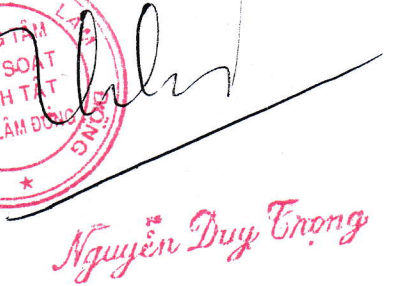 LÂM ĐỒNG
G TÂM
SOÁT
H TẬT
LÂM ĐỒNG
Nguyễn Duy Trọng